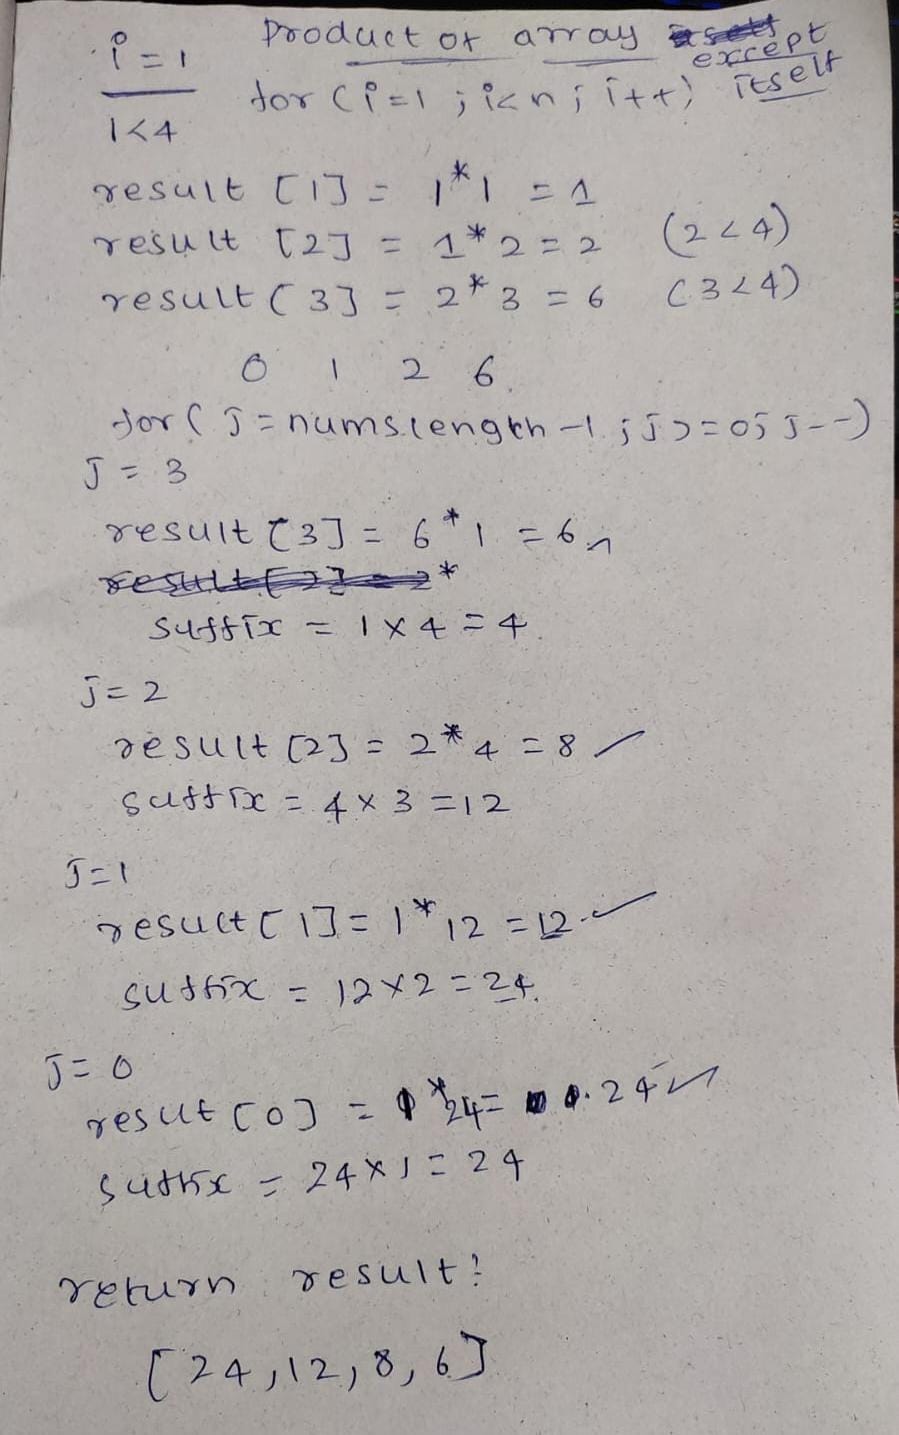 i=1
1<4
Product of array except itself
for (i=1; i<n; i++)
result [1] = 1*1 = 1
result [2] = 1*2 = 2 (2<4)
result [3] = 2*3 = 6 (3<4)
0 1 2 6
for (j=nums.length-1; j>=0; j--)
J = 3
result [3] = 6*1 = 6
suffix = 1×4=4
j=2
result [2] = 2*4 =8
suffix = 4×3 =12
J=1
result [1] = 1*12 =12
suffix = 12×2=24.
J=0
result [0] = 1*24= 24
suffix = 24×1=24
return result;
[24,12,8,6]